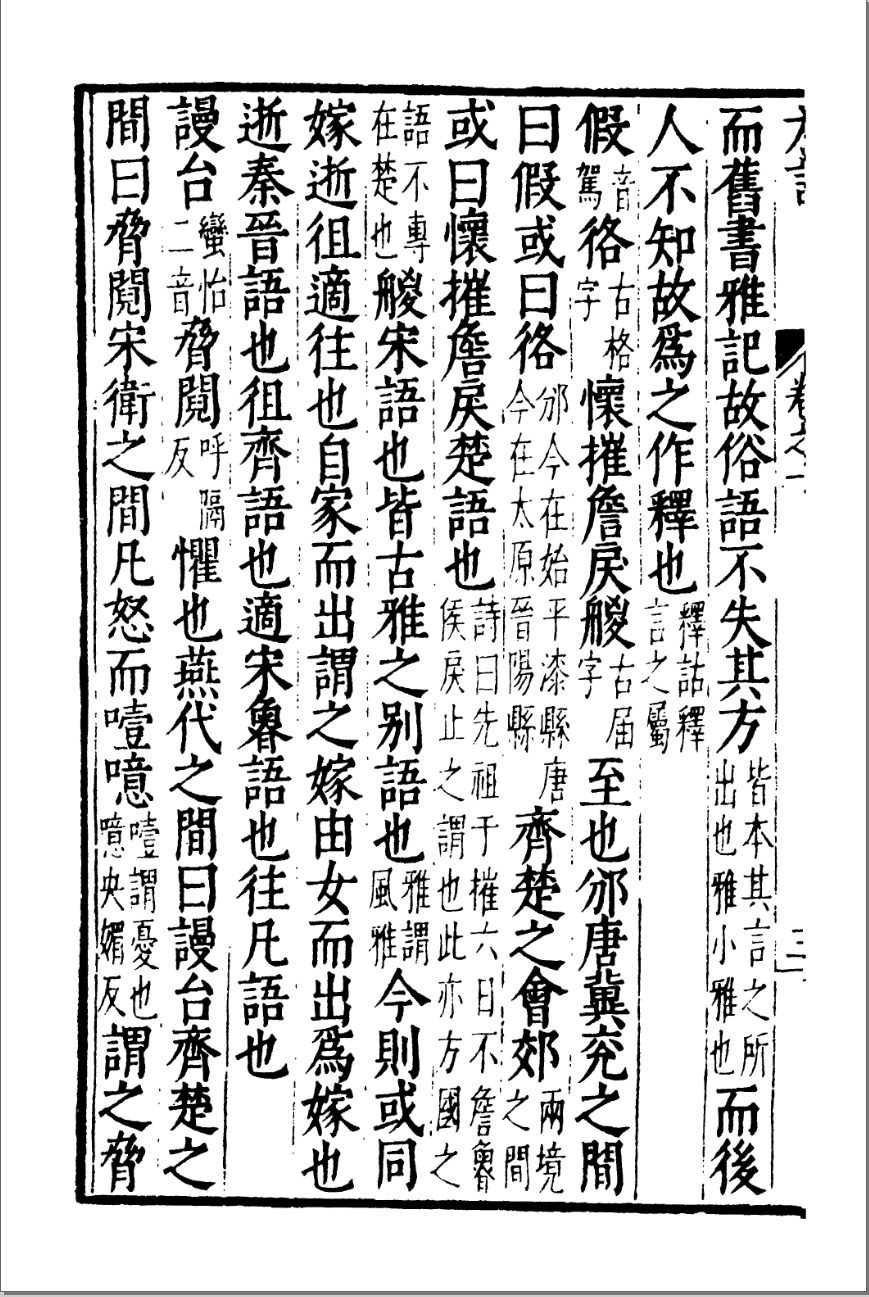 卷之一
而舊書雅記故俗語不失其方皆本其言之所出也雅小雅也而後
人不知故爲之作釋也釋詁釋言之屬
假音駕佫古格字懷摧詹戾艐古届字至也邠唐冀兗之間
曰假或曰佫邠今在始平漆縣唐今在太原晉陽縣齊楚之會郊兩境之間
或曰懷摧詹戾楚語也詩曰先祖于摧六日不詹魯侯戾止之謂也此亦方國之
語不專在楚也艐宋語也皆古雅之别語也雅謂風雅今則或同
嫁逝徂適往也自家而出謂之嫁由女而出爲嫁也
逝秦晉語也徂齊語也適宋魯語也往凡語也
謾台蠻怡二音脅鬩呼隔反懼也燕代之間曰謾台齊楚之
間曰脅鬩宋衛之間凡怒而噎噫噎謂憂也噫央媚反謂之脅